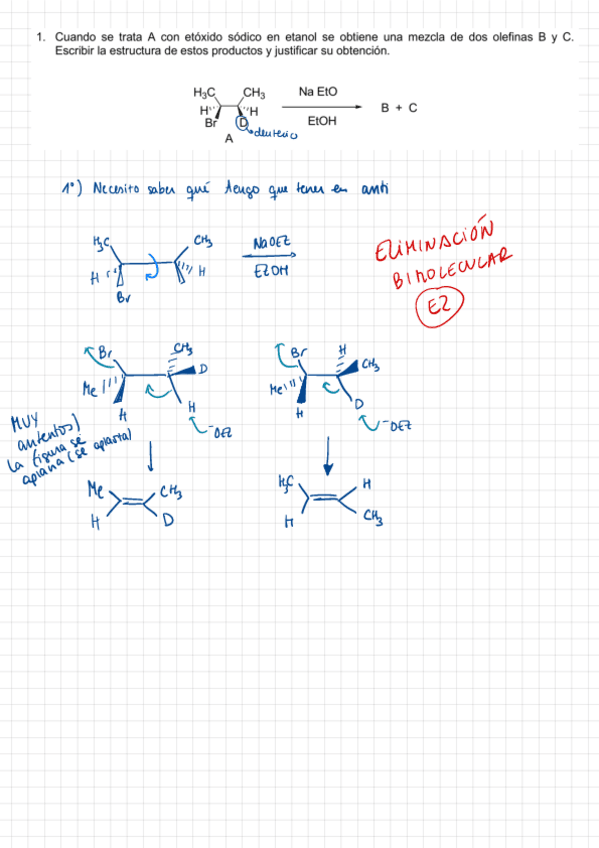 1. Cuando se trata A con etóxido sódico en etanol se obtiene una mezcla de dos olefinas B y C.
Escribir la estructura de estos productos y justificar su obtención.
H3C CH3 Na EtO
H H B + C
Br D EtOH
A deuterio
1º) Necesito saber qué tengo que tener en anti
H3C CH3 NaOEt
H H EtOH
Br
ELIMINACIÓN
BIMOLECULAR
E2
Br CH3 D
Me H H
-OEt
Br H CH3
Me H D
-OEt
MUY
antentos)
La figura se
aplana (se aplasta)
Me CH3
H D
H3C H
H CH3